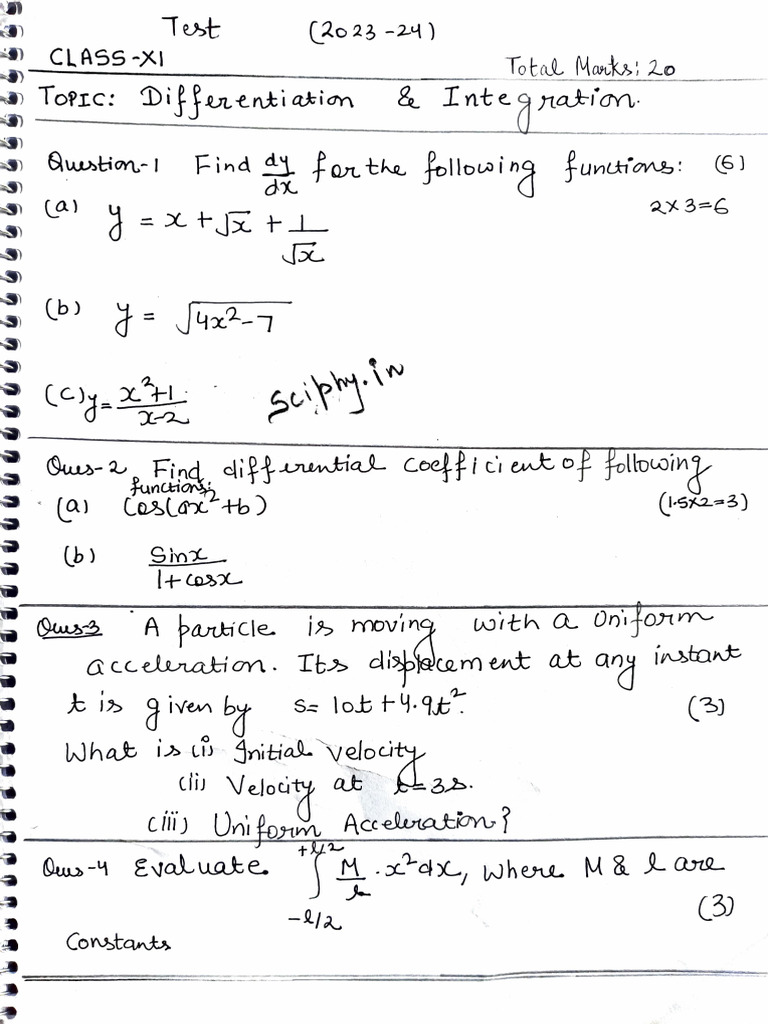 Test (2023-24)
CLASS-XI Total Marks: 20
TOPIC: Differentiation & Integration.
Question-1 Find dy/dx for the following functions: (6)
2×3=6
(a) y = x + √x + 1/√x
(b) y = √(4x²-7)
(C) y = (x²+1)/(x-2)
sciphy.in
Ques-2 Find differential coefficient of following
functions:
(a) Cos(ax²+b) (1.5×2=3)
(b) Sinx/(1+cosx)
Ques-3 A particle is moving with a Uniform
acceleration. Its displacement at any instant
t is given by s= 10t+4.9t². (3)
What is (i) Initial velocity
(ii) Velocity at t=3s.
(iii) Uniform Acceleration?
Ques-4 Evaluate ∫_{-l/2}^{+l/2} M/l · x²dx, where M & l are
(3)
Constants